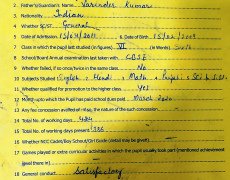 2. Father's/Guardian's Name Varender Kumar
3. Nationality Indian
4. Whether SC/ST General
5. Date of Admission 6. Date of Birth
7. Class in which the pupil last studied (in figures) VI (in Words) Sixth
8. School/Board Annual examination last taken with CBSE
9. Whether failed, if so once/twice in the same class No
10. Subjects Studied English, Hindi, Math, Punjabi, SCI & S.St
11. Whether qualified for promotion to the higher class Yes
12. Month upto which the Pupil has paid school dues paid March
13. Any fee concession availed of: if so, the nature of such concession.
14. Total No. of working days
15. Total No. of working days present
16. Whether NCC Cadet/Boy Scout/Girl Guide (detail may be given)
17. Games played or extra curricular activities in which the pupil usually took part (mentioned achievement
level there in)
18. General conduct Satisfactory